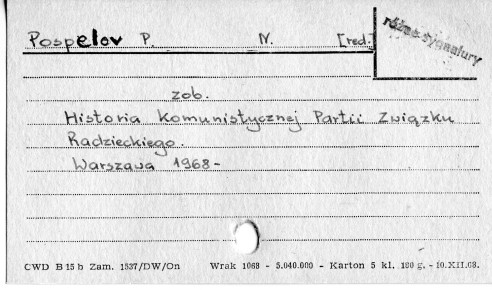 Pospelov P. N. [red.]
różne sygnatury
zob.
Historia Komunistycznej Partii Związku
Radzieckiego.
Warszawa 1968-
CWD B 15 b Zam. 1537/DW/On Wrak 1068 - 5.040.000 - Karton 5 kl. 180 g. - 10.XII.68.